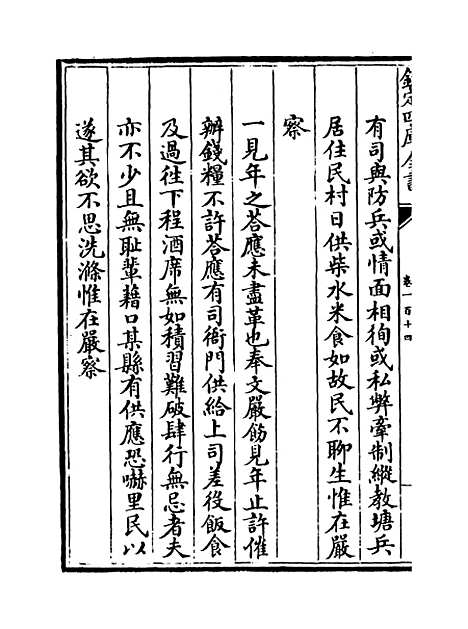 欽定四庫全書
卷一百十四
有司與防兵或情面相徇或私弊牽制縱教塘兵
居住民村日供柴水米食如故民不聊生惟在嚴
察
一見年之荅應未盡革也奉文嚴飭見年止許催
辦錢糧不許荅應有司衙門供給上司差役飯食
及過往下程酒席無如積習難破肆行無忌者夫
亦不少且無耻輩藉口某縣有供應恐嚇里民以
遂其欲不思洗滌惟在嚴察